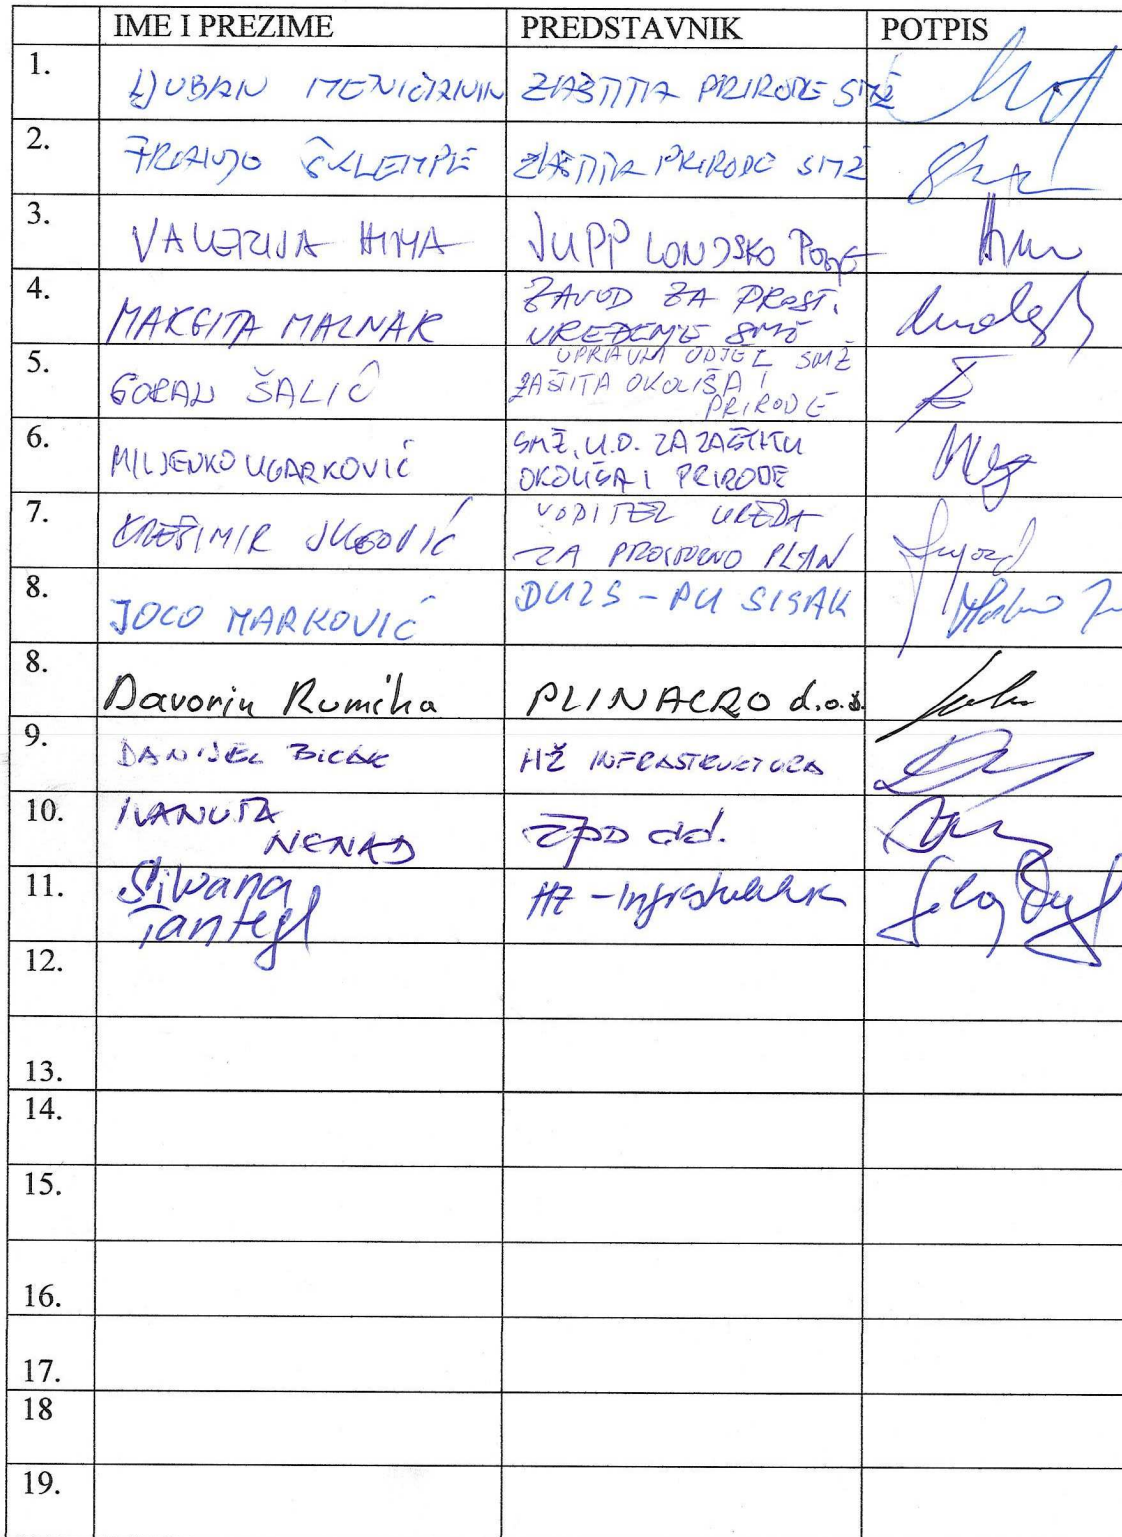 IME I PREZIME PREDSTAVNIK POTPIS
1. LJUBAN ZAŠTITA PRIRODE SMŽ
2. FRANJO ŠKLEMPE ZAŠTITA PRIRODE SMŽ
3. VALERIJA HIMA JUPP LONJSKO POLJE
4. MARGITA MALNAR ZAVOD ZA PROST.
UREĐENJE SMŽ
5. GORAN ŠALIĆ UPRAVNI ODJEL SMŽ
ZAŠTITA OKOLIŠA I
PRIRODE
6. MILJENKO UGARKOVIĆ SMŽ, U.O. ZA ZAŠTITU
OKOLIŠA I PRIRODE
7. KREŠIMIR JUGOVIĆ VODITELJ UREDA
ZA PROSTORNO PLAN
8. JOCO MARKOVIĆ DUZS - PU SISAK
8. Davorin PLINACRO d.o.o.
9. DANIJEL BICAK HŽ INFRASTRUKTURA
10. NENAD ZPD d.d.
11. Silvana HŽ - Infrastruktura
12.
13.
14.
15.
16.
17.
18
19.